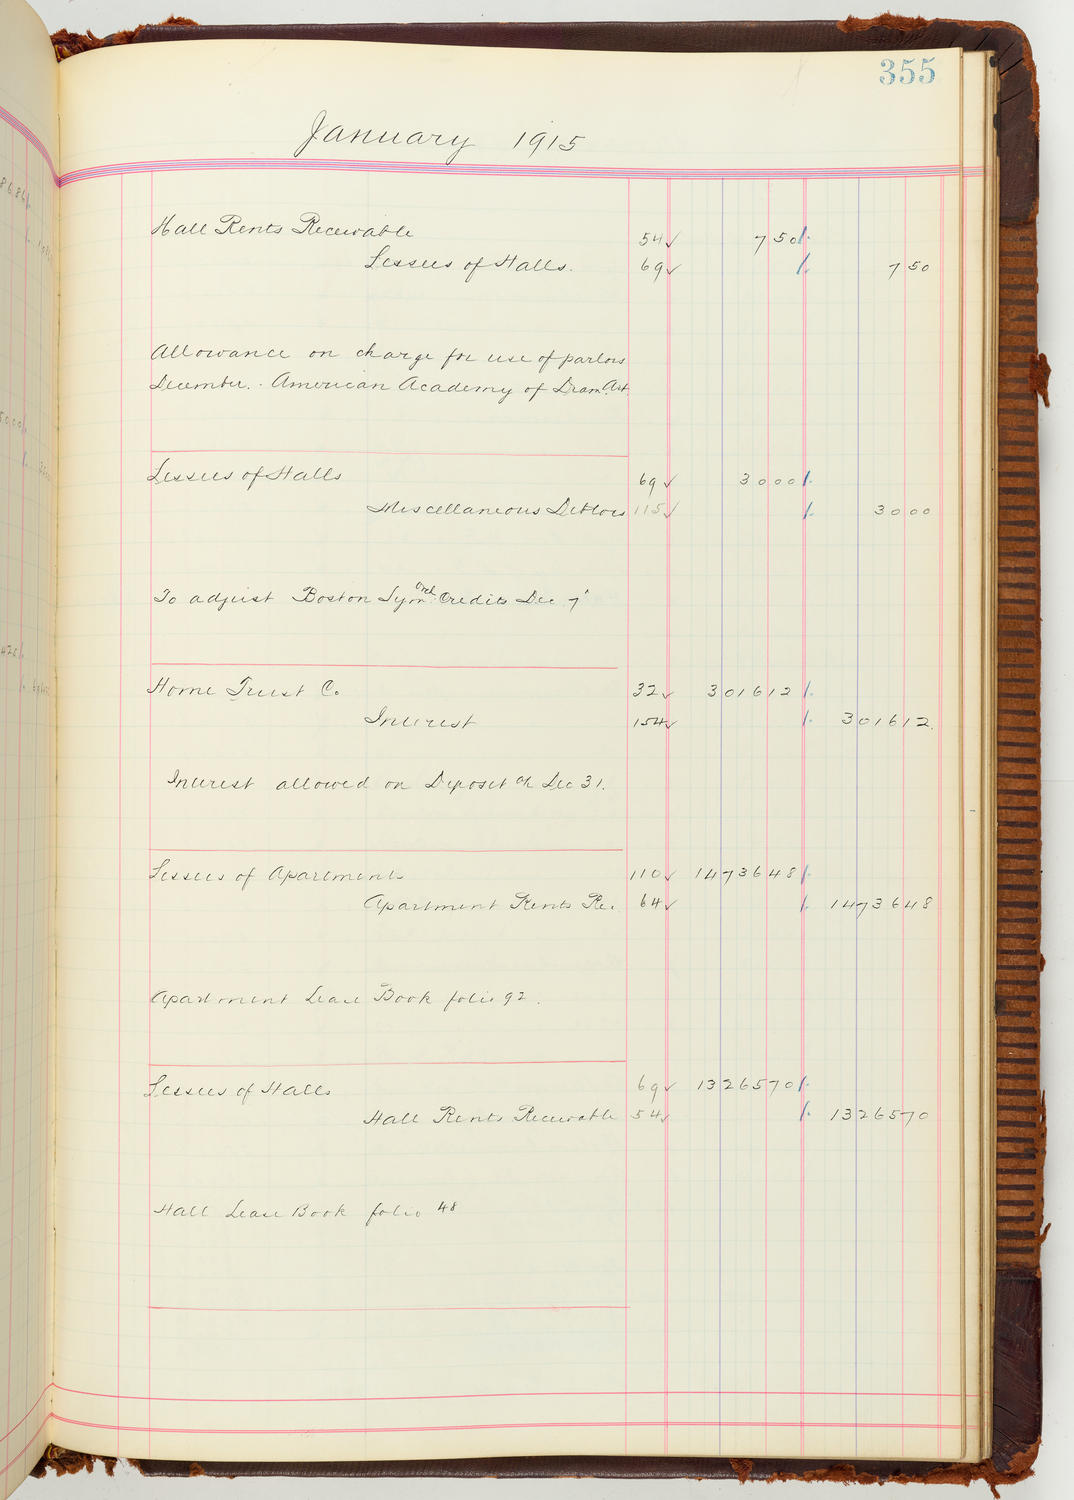 355
January 1915
Hall Rents Receivable 54 ✓ 750
Lessees of Halls. 69 ✓ 750
Allowance on charge for use of parlors
December. - American Academy of Dram. Art.
Lessees of Halls 69 ✓ 3000
Miscellaneous Debtors 115 ✓ 3000
To adjust Boston Sym Orch Credits Dec 7
Home Trust Co 32 ✓ 301612
Interest 154 ✓ 301612.
Interest allowed on Deposit a/c Dec 31.
Lessees of Apartments 110 ✓ 1473648
Apartment Rents Rec. 64 ✓ 1473648
Apartment Lease Book folio 92.
Lessees of Halls 69 ✓ 1326570
Hall Rents Receivable 54 ✓ 1326570
Hall Lease Book folio 48